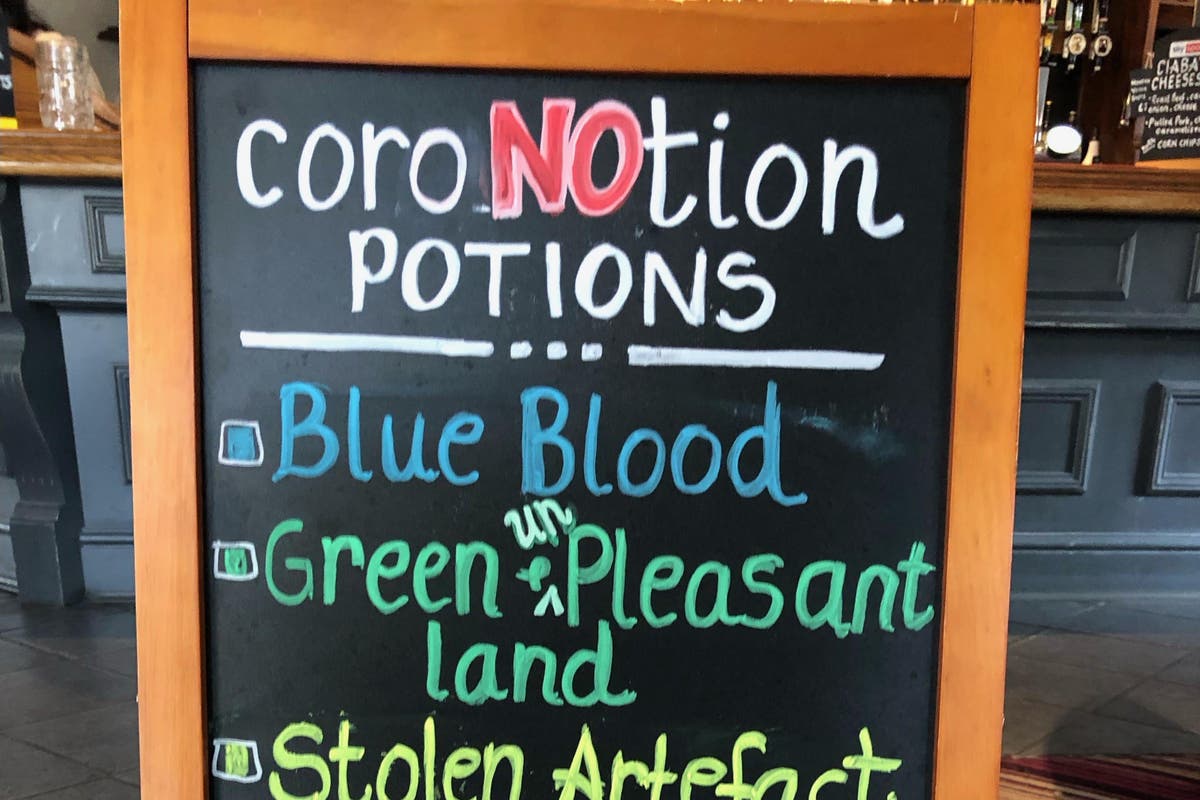 coroNOtion
POTIONS
Blue Blood
un
Green & Pleasant
land
Stolen Artefact
sky
CIABA
CHEESE
onion, cheese
Pulled Pork, c
caramelis
CORN CHIPS